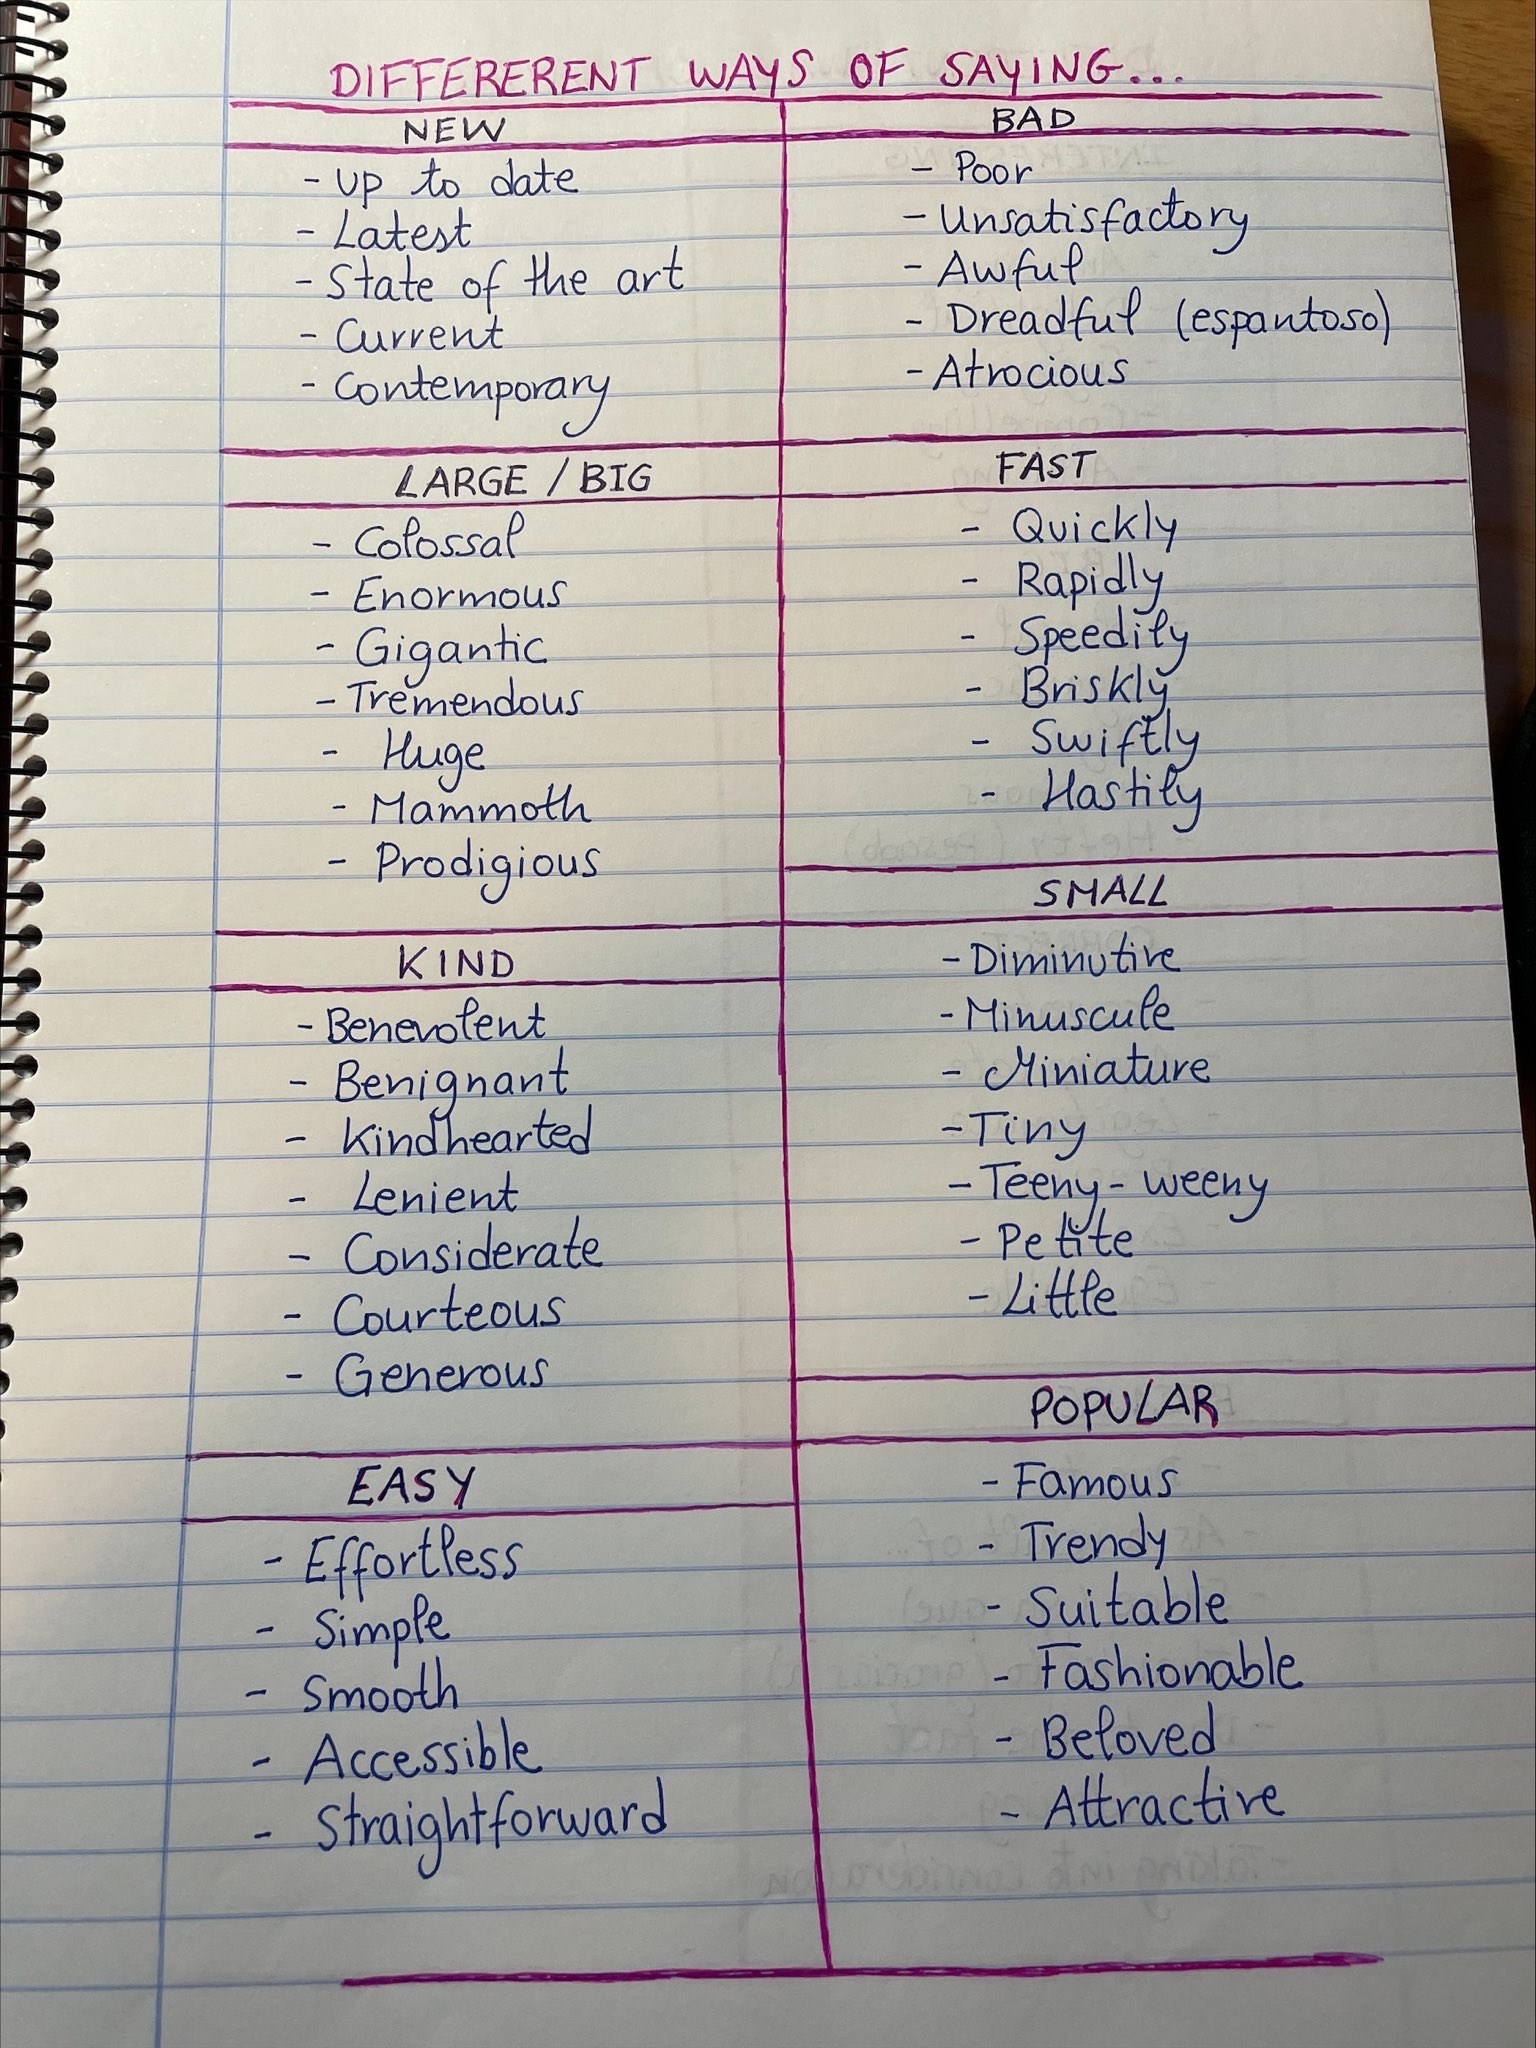 DIFFERERENT WAYS OF SAYING...
NEW
- Up to date
- Latest
- State of the art
- Current
- Contemporary
LARGE / BIG
- Colossal
- Enormous
- Gigantic
- Tremendous
- Huge
- Mammoth
- Prodigious
KIND
- Benevolent
- Benignant
- Kindhearted
- Lenient
- Considerate
- Courteous
- Generous
EASY
- Effortless
- Simple
- Smooth
- Accessible
- Straightforward
BAD
- Poor
- Unsatisfactory
- Awful
- Dreadful (espantoso)
- Atrocious
FAST
- Quickly
- Rapidly
- Speedily
- Briskly
- Swiftly
- Hastily
SMALL
- Diminutive
- Minuscule
- Miniature
- Tiny
- Teeny-weeny
- Petite
- Little
POPULAR
- Famous
- Trendy
- Suitable
- Fashionable
- Beloved
- Attractive